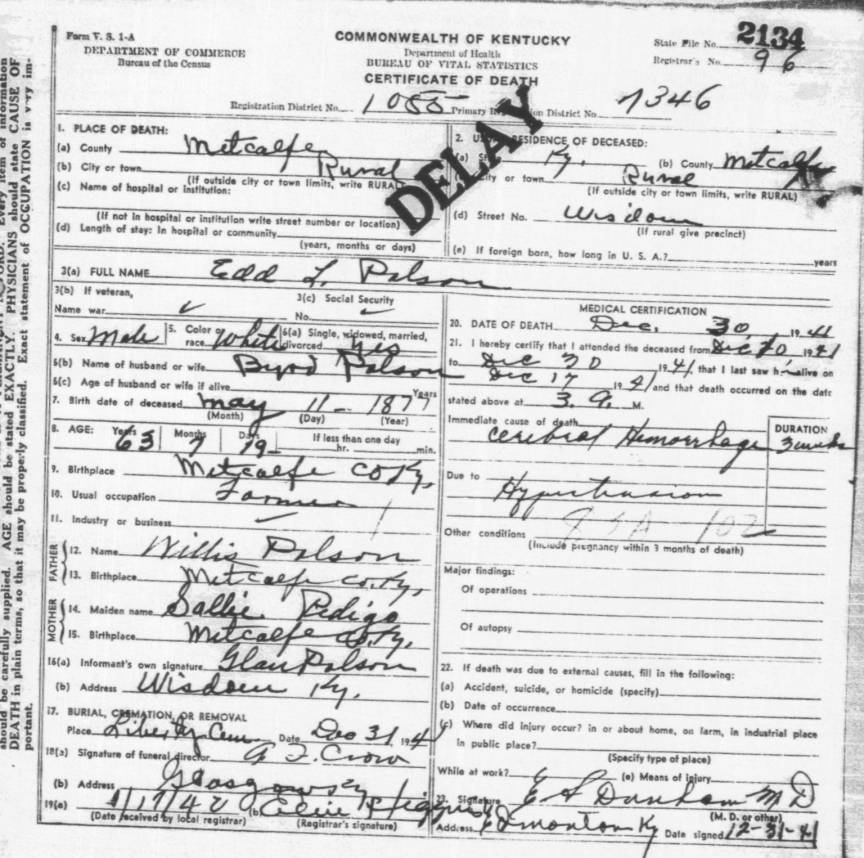 should be carefully supplied. AGE should be stated EXACTLY. PHYSICIANS should state CAUSE OF
DEATH in plain terms, so that it may be properly classified. Exact statement of OCCUPATION is very im-
portant.
Form V. S. 1-A
DEPARTMENT OF COMMERCE
Bureau of the Census
COMMONWEALTH OF KENTUCKY
Department of Health
BUREAU OF VITAL STATISTICS
CERTIFICATE OF DEATH
State File No. 2134
Registrar's No. 96
Registration District No. 1055 Primary District No. 7346
DELAY
1. PLACE OF DEATH:
(a) County Metcalfe
(b) City or town Rural
(If outside city or town limits, write RURAL)
(c) Name of hospital or institution:
(If not in hospital or institution write street number or location)
(d) Length of stay: In hospital or community
(years, months or days)
2. RESIDENCE OF DECEASED:
(a) Ky. (b) County Metcalfe
City or town Rural
(If outside city or town limits, write RURAL)
(d) Street No. Wisdom
(If rural give precinct)
(e) If foreign born, how long in U. S. A.? years
3(a) FULL NAME Edd L. Polson
3(b) If veteran,
Name war
3(c) Social Security
No.
4. Sex Male 5. Color or race White 6(a) Single, widowed, married, divorced yes
6(b) Name of husband or wife Byrd Polson
6(c) Age of husband or wife if alive Years
7. Birth date of deceased may 11 - 1877
(Month) (Day) (Year)
8. AGE: Years 63 Months 7 Days 19 If less than one day
hr. min.
9. Birthplace Metcalfe Co Ky,
10. Usual occupation Farmer
11. Industry or business
FATHER
12. Name Willis Polson
13. Birthplace Metcalfe Co. Ky,
MOTHER
14. Maiden name Sallie Pedigo
15. Birthplace Metcalfe Co. Ky.
16(a) Informant's own signature Glan Polson
(b) Address Wisdom Ky.
17. BURIAL, CREMATION, OR REMOVAL
Place Liberty Cem Date Dec 31, 1941
18(a) Signature of funeral director A F. Crow
(b) Address Glasgow Ky
19(a) 1/17/42 (b)
(Date received by local registrar) (Registrar's signature)
MEDICAL CERTIFICATION
20. DATE OF DEATH Dec. 30, 1941
21. I hereby certify that I attended the deceased from Dec 1941
to Dec 30 1941 that I last saw h alive on
Dec 17 1941 and that death occurred on the date
stated above at 3 M.
Immediate cause of death
Cerebral Hemorrhage
DURATION
3 weeks
Due to Hypertension
Other conditions
(Include pregnancy within 3 months of death)
Major findings:
Of operations
Of autopsy
22. If death was due to external causes, fill in the following:
(a) Accident, suicide, or homicide (specify)
(b) Date of occurrence
(c) Where did injury occur? in or about home, on farm, in industrial place
in public place?
(Specify type of place)
While at work? (e) Means of injury
23. Signature E S Dunham M D
(M. D. or other)
Address Edmonton Ky Date signed 12-31-41